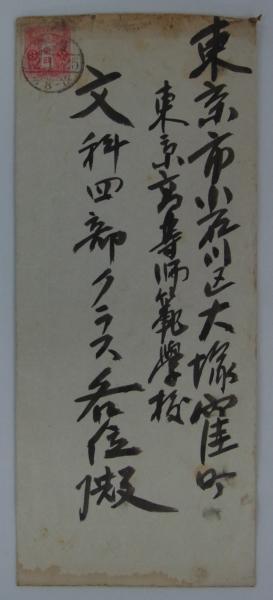 東京市小石川区大塚窪町
東京高等師範學校
文科四部クラス各位殿